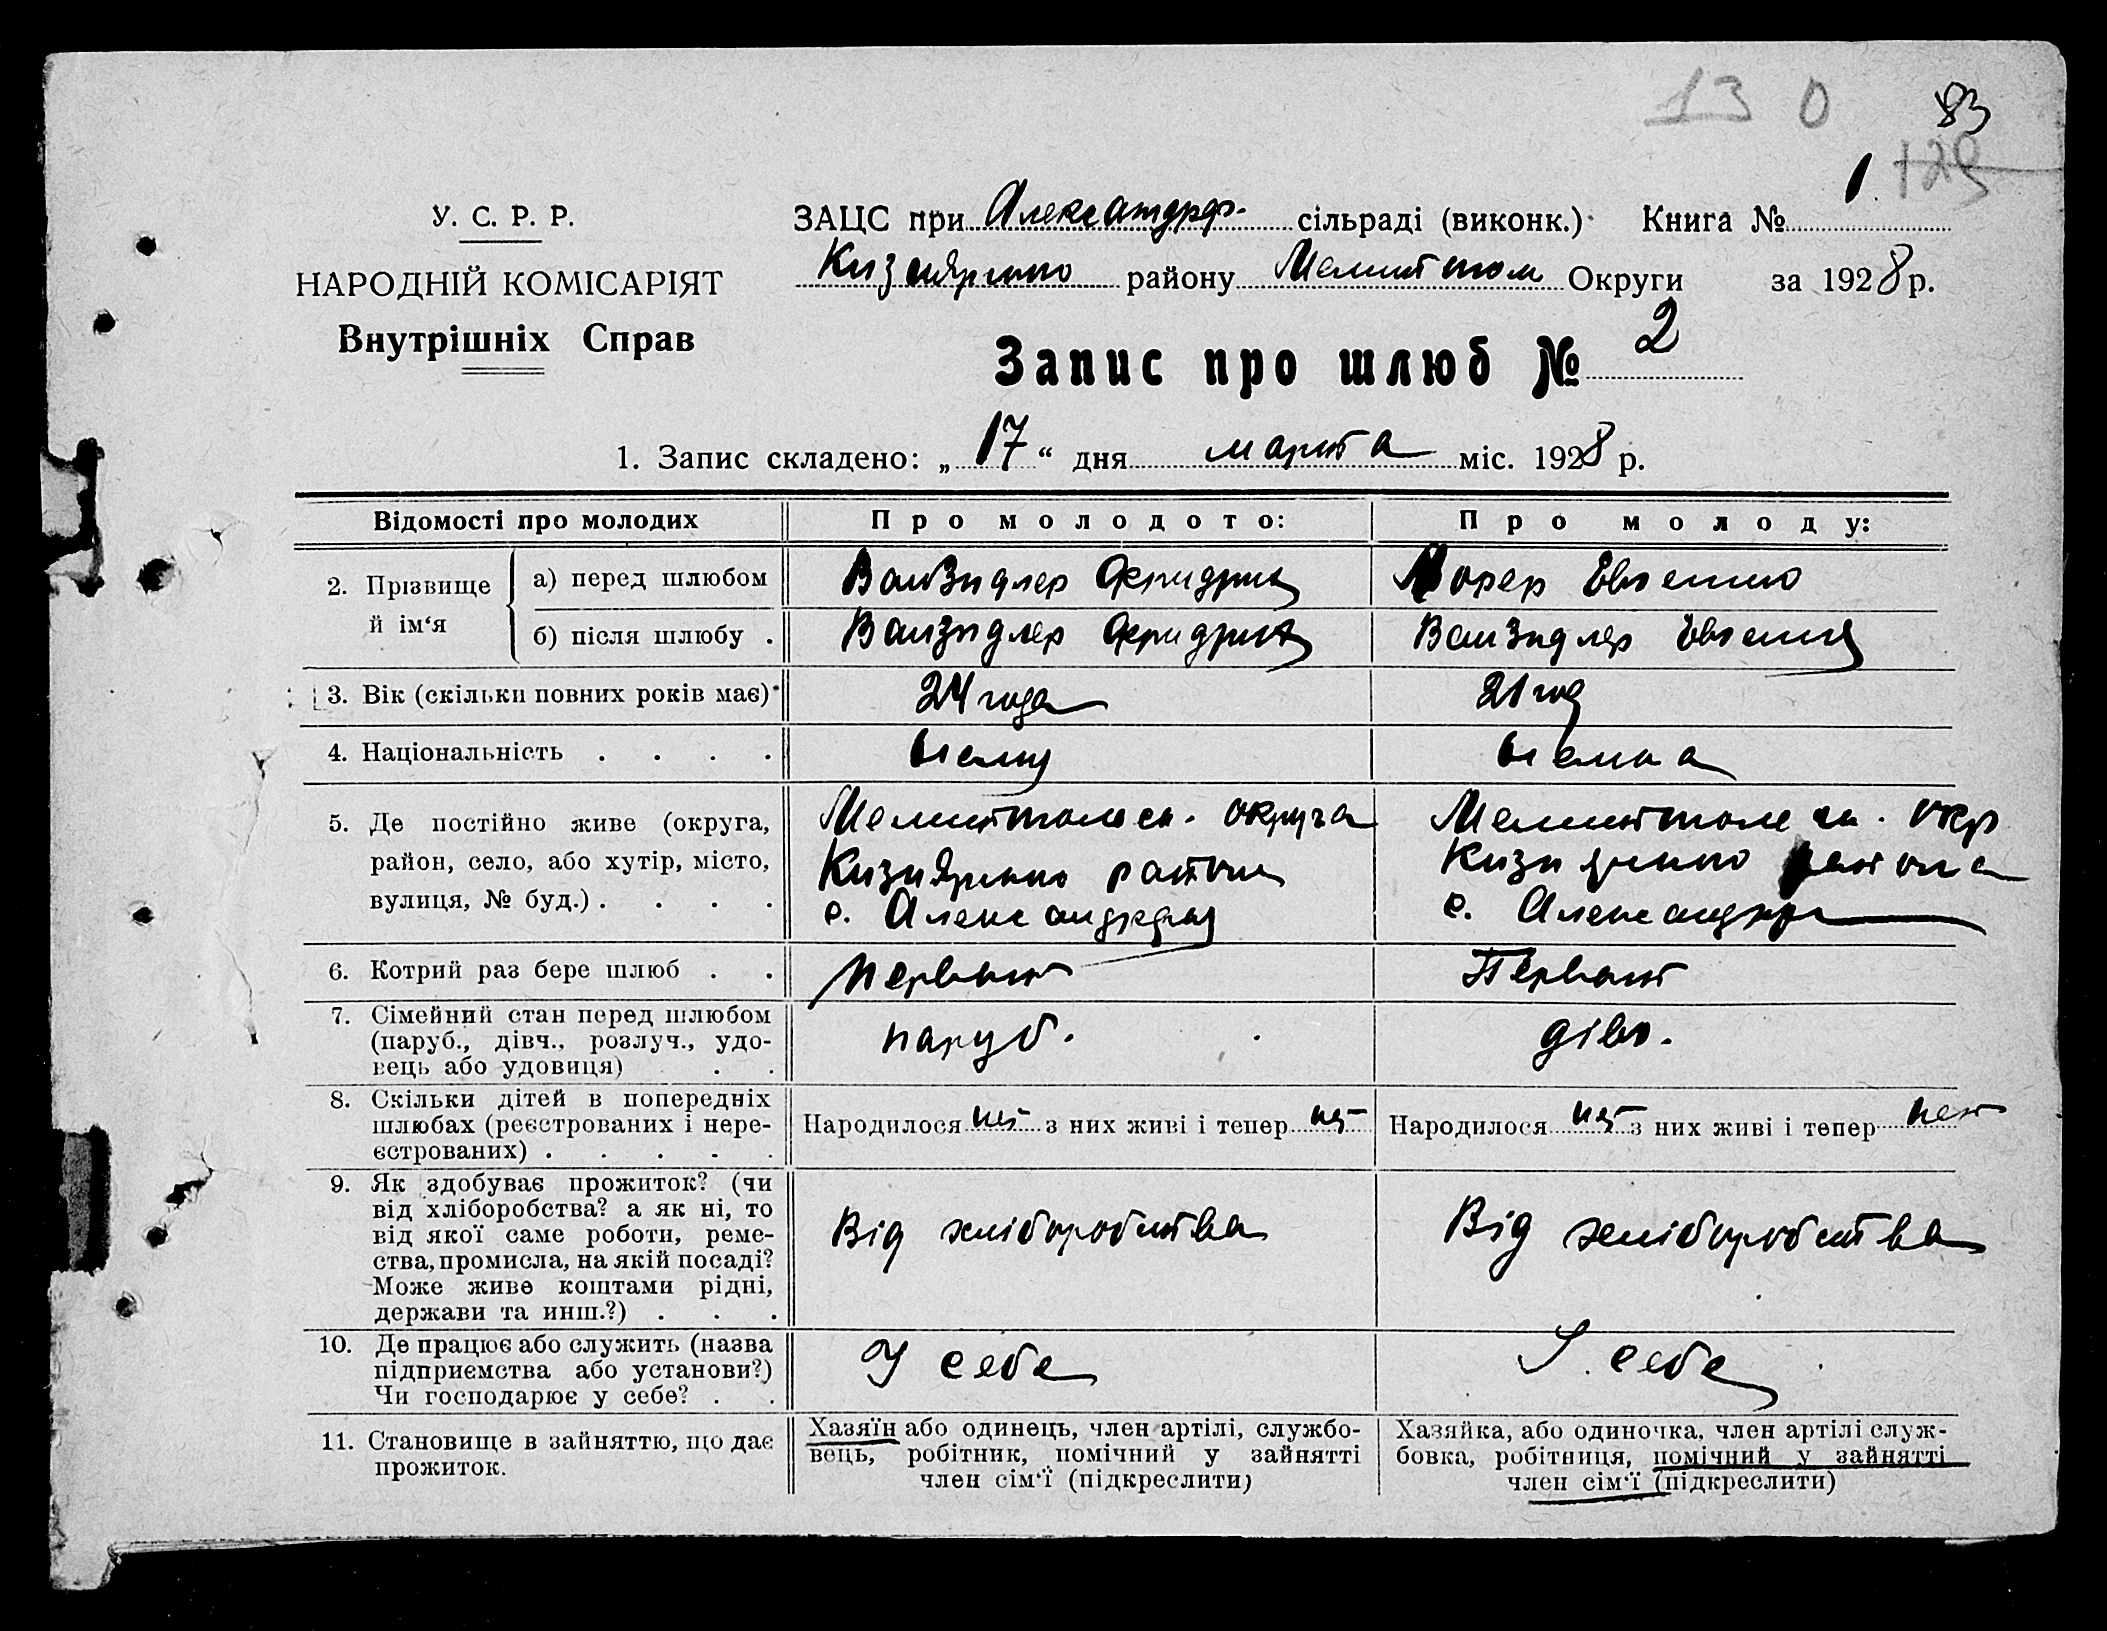 13 0
83
129
У. С. Р. Р.
НАРОДНІЙ КОМІСАРІЯТ
Внутрішніх Справ
ЗАЦС при Александрф. сільраді (виконк.) Книга № 1
району Мелитпол Округи за 1928 р.
Запис про шлюб № 2
1. Запис складено: „17“ дня марта міс. 1928 р.
Відомості про молодих Про молодого: Про молоду:
2. Прізвище й ім‘я
а) перед шлюбом Фридрих Морер Евгению
б) після шлюбу . Валзидлер Фридрих Валзидлер Евгения
3. Вік (скільки повних років має) 24 года 21 год
4. Національність . . . . немец немка
5. Де постійно живе (округа, район, село, або хутір, місто, вулиця, № буд.) . . . .
Мелитпольск. округа
района
с.
Мелитпольск. окр
района
с. Александр
6. Котрий раз бере шлюб . . первый Первый
7. Сімейний стан перед шлюбом (паруб., дівч., розлуч., удовець або удовиця) . . паруб. дівч.
8. Скільки дітей в попередніх шлюбах (реєстрованих і нереєстрованих) . . . . .
Народилося нет з них живі і тепер нет Народилося нет з них живі і тепер нет
9. Як здобуває прожиток? (чи від хліборобства? а як ні, то від якої саме роботи, ремества, промисла, на якій посаді? Може живе коштами рідні, держави та инш.?) . . .
Від хліборобства Від хліборобства
10. Де працює або служить (назва підприємства або установи?) Чи господарює у себе? . .
У себе У себе
11. Становище в зайняттю, що дає прожиток.
Хазяїн або одинець, член артілі, службовець, робітник, помічний у зайнятті член сім‘ї (підкреслити)
Хазяйка, або одиночка, член артілі службовка, робітниця, помічний у зайнятті член сім‘ї (підкреслити)